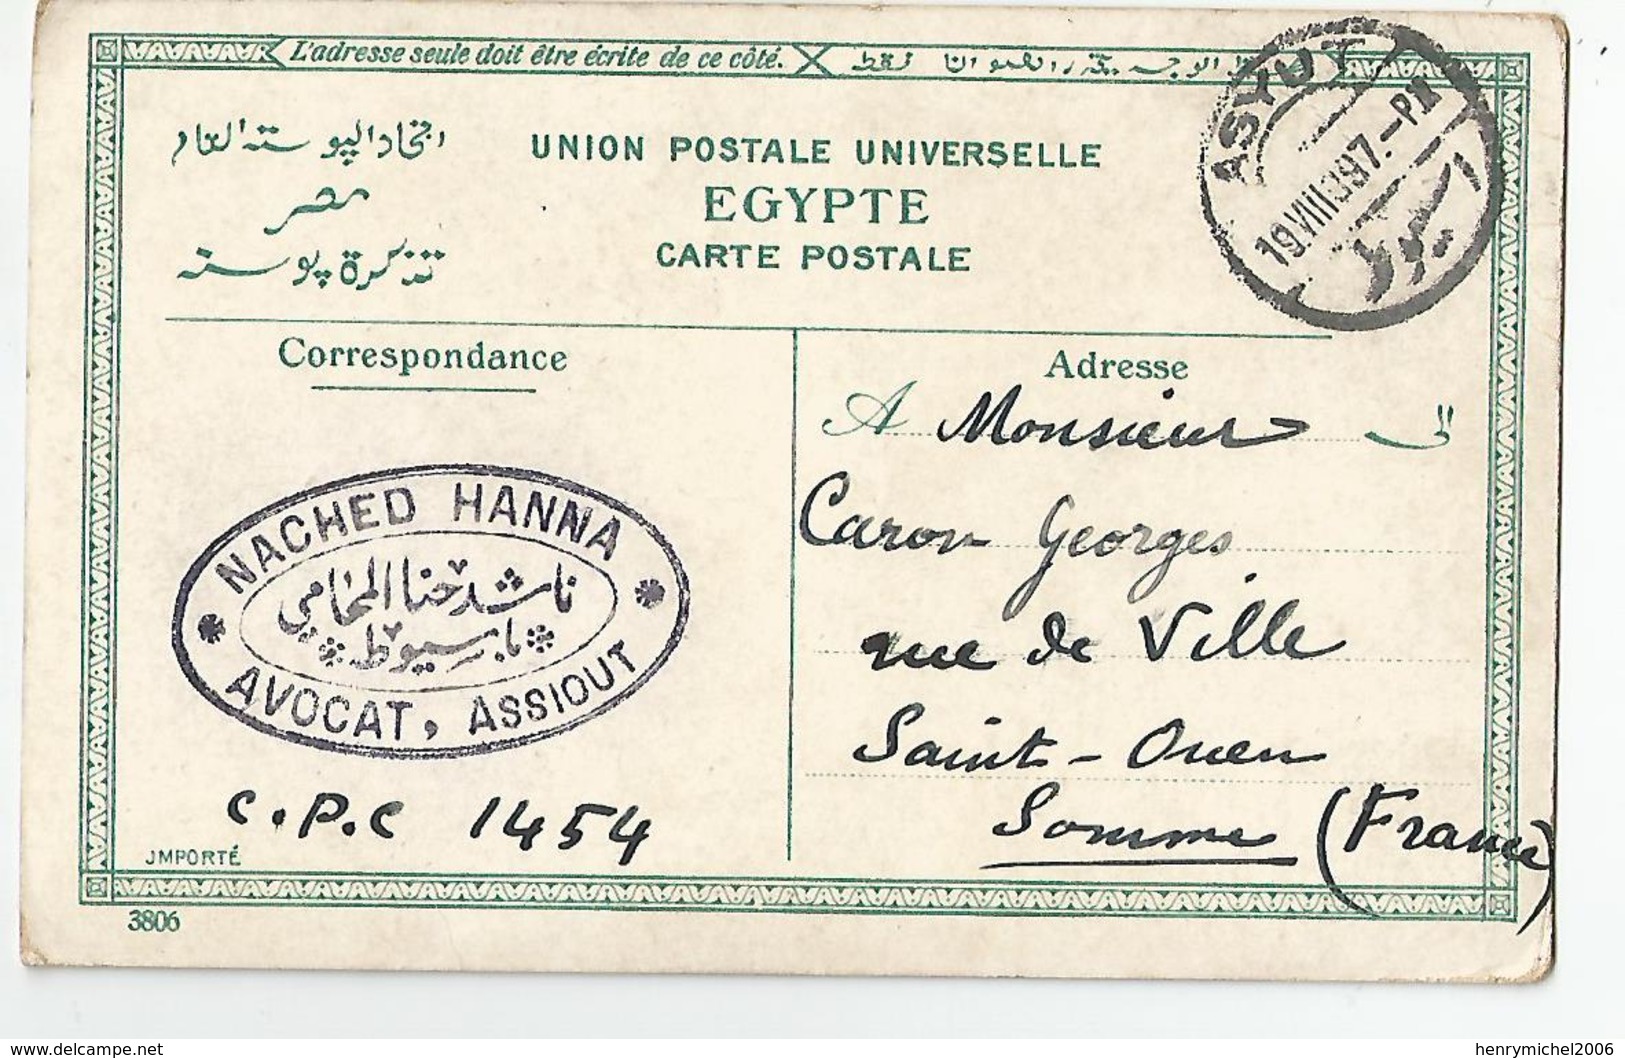 L'adresse seule doit être écrite de ce côté.
اتحاد البوسته العام
مصر
تذكرة بوسته
UNION POSTALE UNIVERSELLE
EGYPTE
CARTE POSTALE
ASYUT
19.VIII 39.7.-PM
اسيوط
Correspondance
Adresse
A Monsieur الى
Caron Georges
rue de Ville
Saint-Ouen
Somme (France)
NACHED HANNA
ناشد حنا المحامي
باسيوط
AVOCAT, ASSIOUT
C.P.C 1454
JMPORTÉ
3806
www.delcampe.net
henrymichel2006